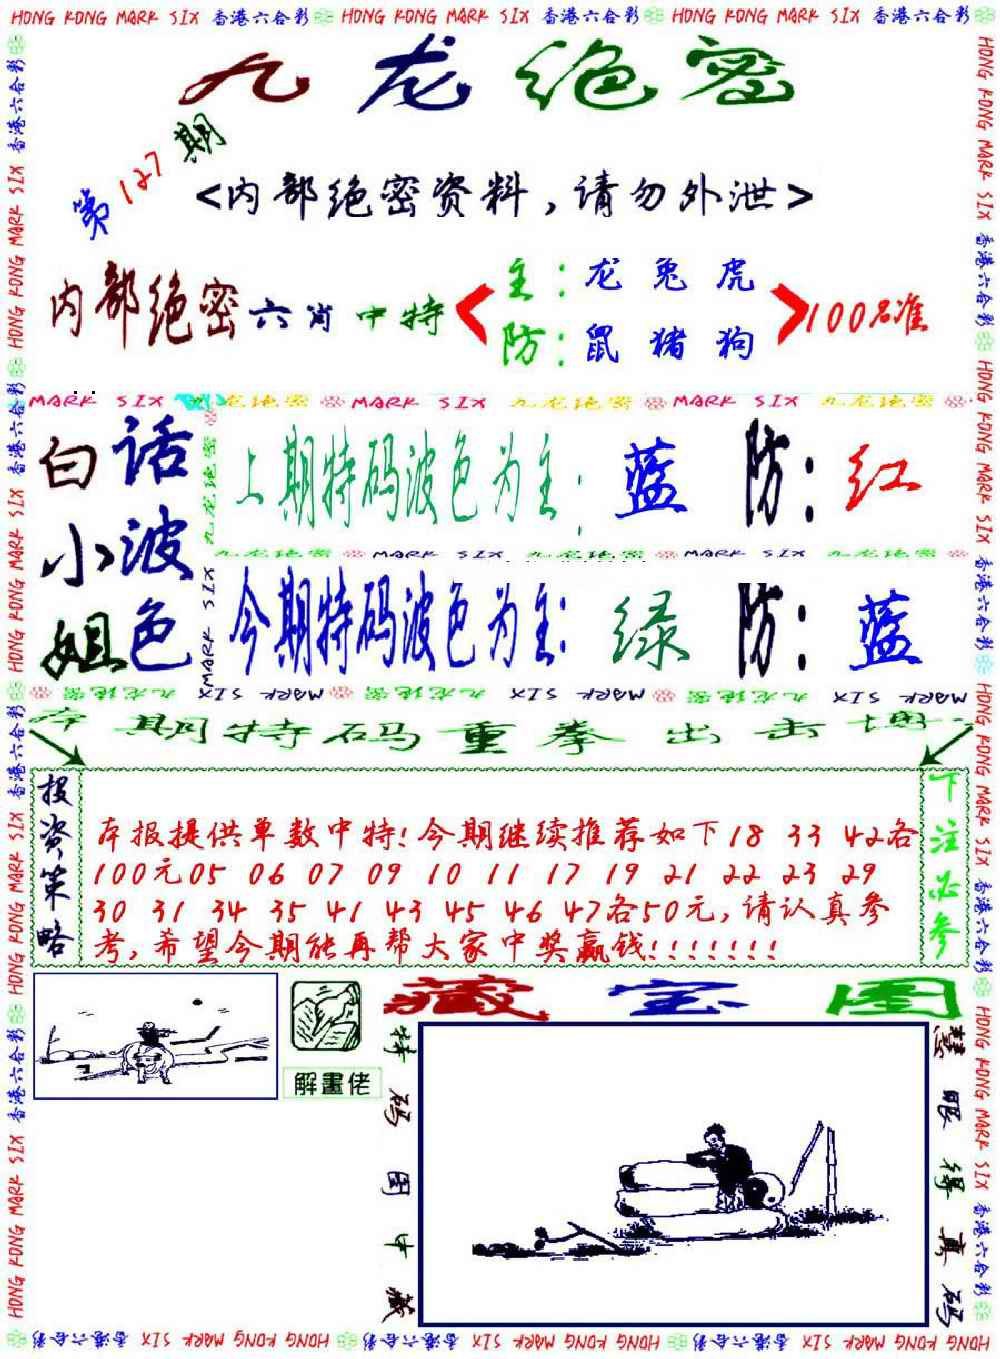 HONG KONG MARK SIX 香港六合彩 HONG KONG MARK SIX 香港六合彩 HONG KONG MARK SIX 香港六合彩
九龙绝密
第127期
<内部绝密资料,请勿外泄>
内部绝密六肖中特
主:龙兔虎
防:鼠猪狗
100%准
MARK SIX 九龙绝密 MARK SIX 九龙绝密 MARK SIX 九龙绝密
白小姐
话波色
上期特码波色为主:蓝 防:红
九龙绝密 MARK SIX 九龙绝密 MARK SIX 九龙绝密
今期特码波色为主:绿 防:蓝
九龙绝密 MARK SIX 九龙绝密 MARK SIX 九龙绝密 MARK SIX
期特码重拳出击
投资策略
本报提供单数中特!今期继续推荐如下18 33 42各
100元05 06 07 09 10 11 17 19 21 22 23 29
30 31 34 35 41 43 45 46 47各50元,请认真参
考,希望今期能再帮大家中奖赢钱!!!!!!!
下注必参
解畫佬
藏宝图
特码图中藏
慧眼得真码
HONG KONG MARK SIX 香港六合彩 HONG KONG MARK SIX 香港六合彩 HONG KONG MARK SIX 香港六合彩